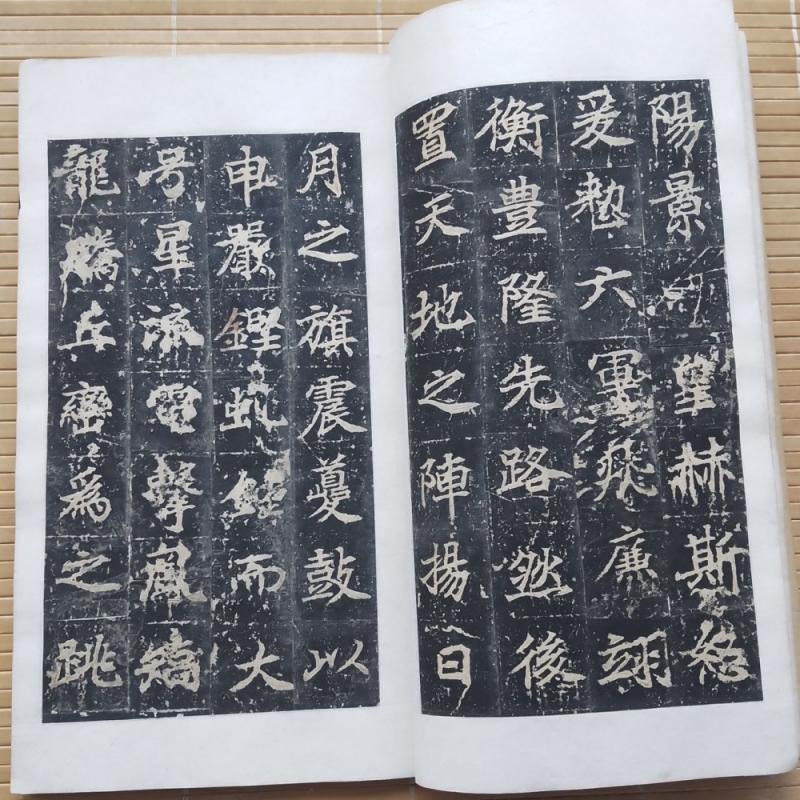 陽景赫斯怒
爰勑六軍飛廉翊
衡豊隆先路然後
置天地之陣揚日
月之旗震夔鼓以
申嚴鏗虬而大
号星流電擊風
龍騰丘巒為之跳